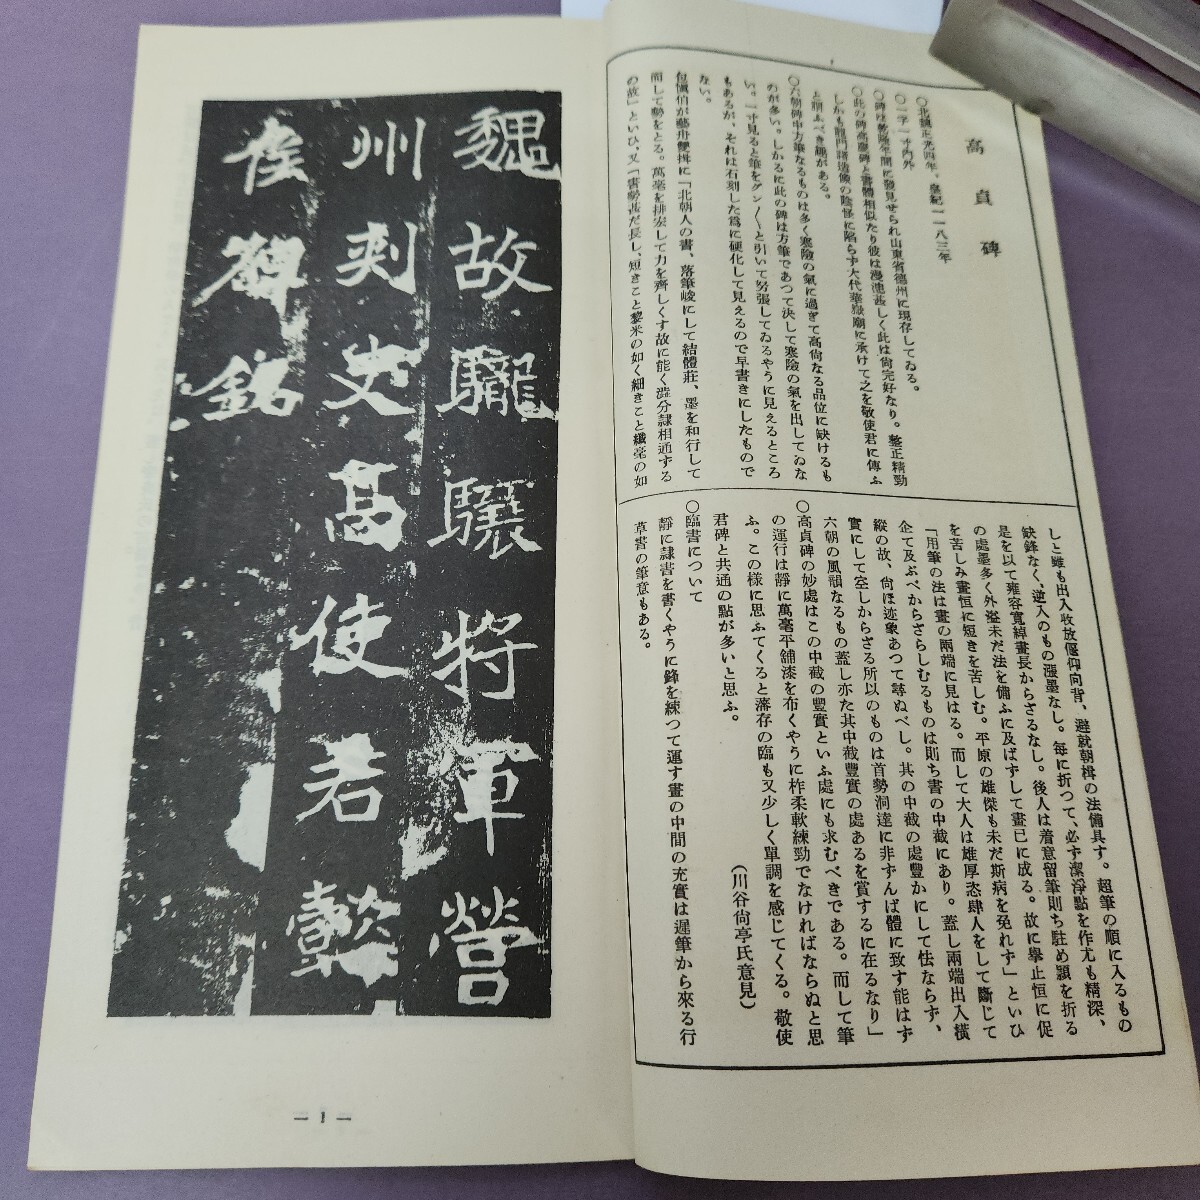 高貞碑
○北魏正光四年。皇紀一一八三年
○一字一寸內外
○碑は乾隆年間に發見せられ山東省德州に現存してゐる。
○此の碑高慶碑と書體相似たり彼は漫漶甚しく此は尙完好なり。整正精勁
しかも龍門諸造像の陰怪に陷らず大代華嶽廟に承けて之を敬使君に傳ふ
と謂ふべき趣がある。
○六朝碑中方筆なるものは多く寒險の氣に過ぎて高尙なる品位に缺けるも
のが多い。しかるに此の碑は方筆であつて決して寒險の氣を出してゐな
い。一寸見ると筆をグン〱と引いて努張してゐるやうに見えるところ
もあるが、それは石刻した爲に硬化して見えるので早書きにしたもので
ない。
包愼伯が藝舟雙揖に「北朝人の書、落筆峻にして結體莊、墨を和行して
而して勢をとる。萬毫を排宏して力を齊しくす故に能く澁分隷相通ずる
の故」といひ、又「書勢甚だ長し、短きこと黎米の如く細きこと纖毫の如
しと雖も出入收放偃仰向背、避就朝楫の法備具す。超筆の順に入るもの
缺鋒なく、逆入のもの漲墨なし。每に折つて、必ず潔淨點を作尤も精深、
是を以て雍容寬綽畫長からざるなし。後人は着意留筆則ち駐め穎を折る
の處墨多く外溢未だ法を備ふに及ばずして畫已に成る。故に擧止恒に促
を苦しみ畫恒に短きを苦しむ。平原の雄傑も未だ斯病を免れず」といひ
「用筆の法は畫の兩端に見はる。而して大人は雄厚恣肆人をして斷じて
企て及ぶべからざらしむるものは則ち書の中截にあり。蓋し兩端出入橫
縱の故、尙ほ迹象あつて尋ぬべし。其の中截の處豐かにして怯ならず、
實にして空しからざる所以のものは首勢洞達に非ずんば體に致す能はず
六朝の風韻なるもの蓋し亦た其中截豐實の處あるを賞するに在るなり」
○高貞碑の妙處はこの中截の豐實といふ處にも求むべきである。而して筆
の運行は靜に萬毫平舖漆を布くやうに柞柔軟練勁でなければならぬと思
ふ。この樣に思ふてくると藩存の臨も又少しく單調を感じてくる。敬使
君碑と共通の點が多いと思ふ。
(川谷尙亭氏意見)
○臨書について
靜に隷書を書くやうに鋒を練つて運す畫の中間の充實は遲筆から來る行
草書の筆意もある。
魏故驪驤將軍營
州刺史高使君懿
侯碑銘
— 1 —